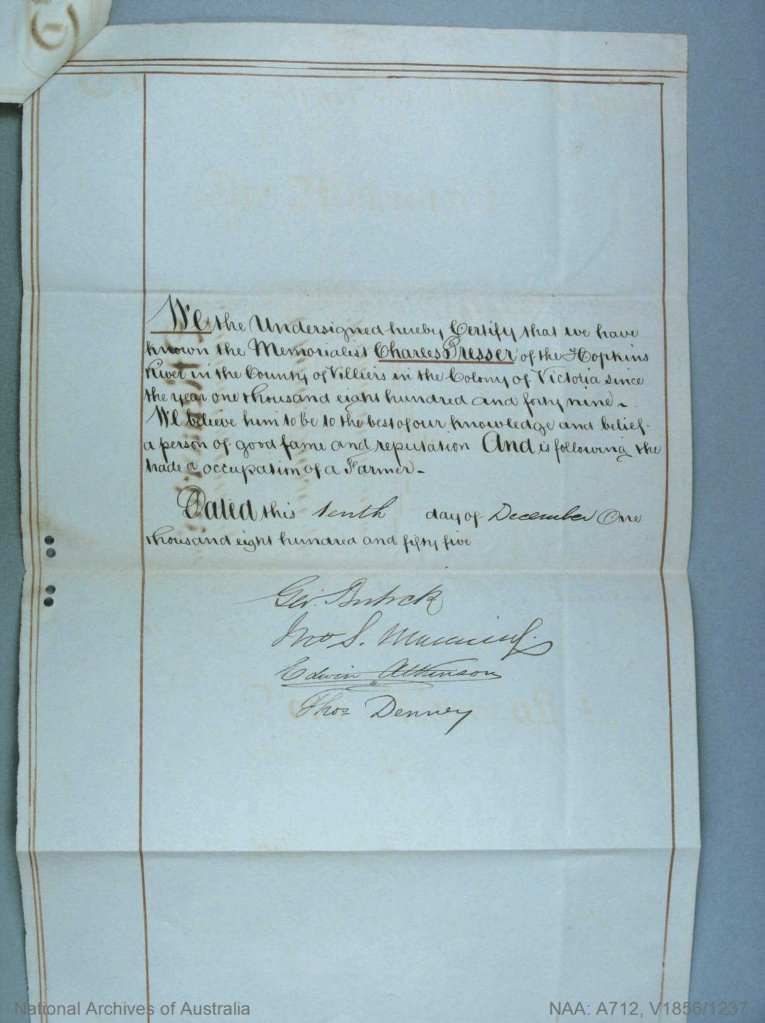 We the Undersigned hereby Certify that we have
known the Memorialist Charles Presser of the Hopkins
River in the County of Villiers in the Colony of Victoria since
the year one thousand eight hundred and forty nine.
We believe him to be to the best of our knowledge and belief
a person of good fame and reputation And is following the
trade or occupation of a Farmer.
Dated this tenth day of December One
thousand eight hundred and fifty five
Geo.
Jno S.
Edwin Atkinson
Thos Denney
National Archives of Australia
NAA: A712, V1856/1237